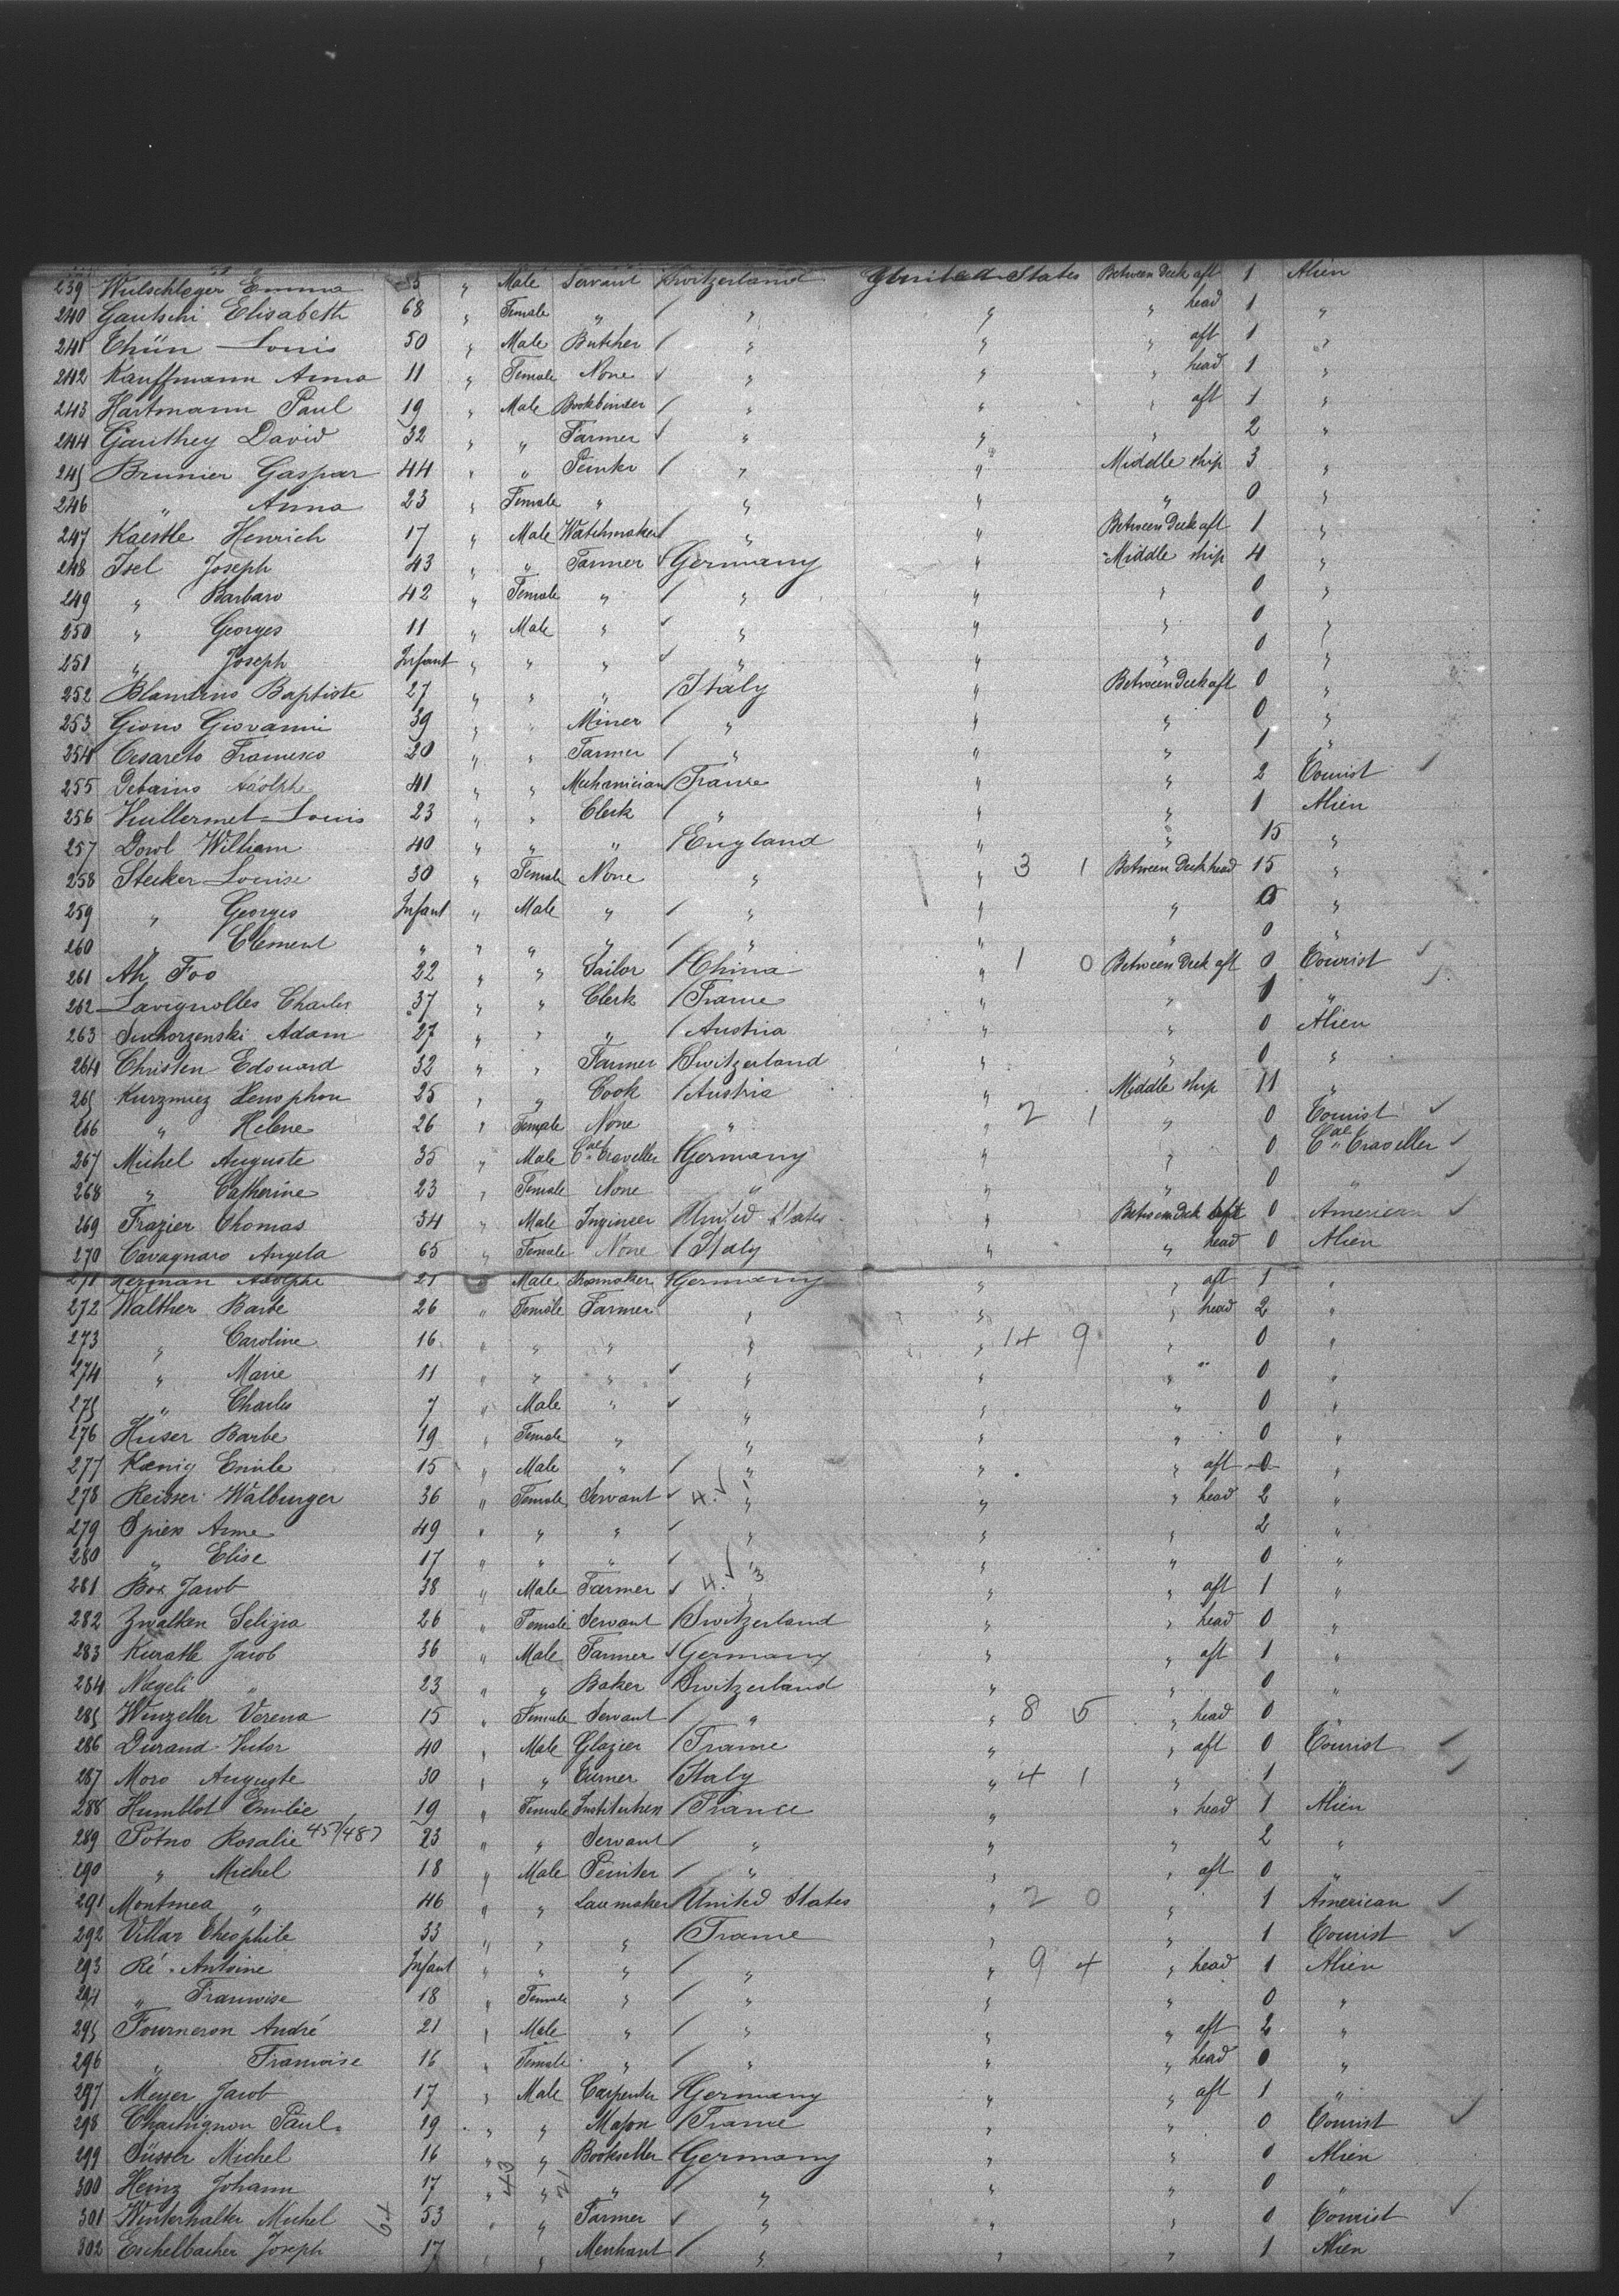 239 Wulschleger Emma 35 " Male Servant Switzerland United States Between Deck aft 1 Alien
240 Gautschi Elisabeth 68 " Female " / " " " head 1 "
241 Thün Louis 50 " Male Butcher / " " " aft 1 "
242 Kauffmann Anna 11 " Female None " " " head 1 "
243 Hartmann Paul 19 " Male Bookbinder / " " " aft 1 "
244 Gauthey David 32 " " Farmer " " " 2 "
245 Brunier Gaspar 44 " " Peinter / " " Middle ship 3 "
246 " Anna 23 " Female " " " " 0 "
247 Kaestle Henrich 17 " Male Watchmaker / " " Between Deck aft 1 "
248 Isel Joseph 43 " " Farmer Germany " Middle ship 4 "
249 " Barbara 42 " Female " / " " " 0 "
250 " Georges 11 " Male " " " " 0 "
251 " Joseph Infant " " " " " " 0 "
252 Blamdino Baptiste 27 " " " / Italy " Between Deck aft 0 "
253 Giono Giovanni 39 " " Miner / " " " 0 "
254 Cesareto Framesco 20 " " Farmer / " " " 1 "
255 Debains Adolphe 41 " " Mechanician / France " " 2 Tourist ✓
256 Vuillermet Louis 23 " " Clerk / " " " 1 Alien
257 Dowl William 40 " " " / England " " 15 "
258 Stecker Louise 30 " Female None " " 3 1 Between Deck head 15 "
259 " Georges Infant " Male " / " " " 0 "
260 " Clement " " " " / " " " 0 "
261 Ah Foo 22 " " Sailor / China " 1 0 Between Deck aft 0 Tourist ✓
262 Lavignolles Charles 37 " " Clerk / France " " 1 " ✓
263 Suchorzenski Adam 27 " " " / Austria " " 0 Alien
264 Christen Edouard 32 " " Farmer / Switzerland " " 0 "
265 Kurzmiez Xenophon 25 " " Cook / Austria " Middle ship 11 "
266 " Helene 26 " Female None " " 2 1 " 0 Tourist ✓
267 Michel Auguste 35 " Male Cal Traveller Germany " " 0 Cal Traveller ✓
268 " Catherine 23 " Female None " " " 0 " ✓
269 Frazier Thomas 34 " Male Ingineer United States " Between Deck aft 0 American ✓
270 Cavagnaro Angela 65 " Female None / Italy " " head 0 Alien
271 Herman Adolphe 21 " Male Shoemaker Germany " " aft 1 "
272 Walther Barbe 26 " Female Farmer " " " head 2 "
273 " Caroline 16 " " " " " 14 9 " 0 "
274 " Marie 11 " " " ✓ " " " " 0 "
275 " Charles 7 " Male " ✓ " " " 0 "
276 Huser Barbe 19 " Female " " " " 0 "
277 Kœnig Emile 15 " Male " / " " " aft 0 "
278 Reisser Walburger 36 " Female Servant ✓ 4. ✓ " " " head 2 "
279 Spiess Anne 49 " " " / " " " 2 "
280 " Elise 17 " " " / " " " 0 "
281 Box Jacob 38 " Male Farmer ✓ 4. ✓ 3 " " " aft 1 "
282 Zwalken Selizia 26 " Female Servant / Switzerland " " head 0 "
283 Kurath Jacob 36 " Male Farmer Germany " " aft 1 "
284 Nageli " 23 " " Baker Switzerland " " 0 "
285 Winzeller Verena 15 " Female Servant / " " 8 5 " head 0 "
286 Durand Victor 40 " Male Glazier / France " " aft 0 Tourist ✓
287 Moro Auguste 30 " " Turner / Italy " 4 1 " 1 " ✓
288 Humblot Emilie 19 " Female Institutress / France " " head 1 Alien
289 Potno Rosalie 457/487 23 " " Servant / " " " 2 "
290 " Michel 18 " Male Peinter / " " " aft 0 "
291 Montmea " 46 " " Lacemaker United States " 2 0 " 1 American ✓
292 Villar Theophile 33 " " " / France " " 1 Tourist ✓
293 Ré Antoine Infant " " " / " " 9 4 " head 1 Alien
294 " Francoise 18 " Female " / " " " 0 "
295 Fourneron André 21 " Male " / " " " aft 2 "
296 " Francoise 16 " Female " / " " " head 0 "
297 Meyer Jacob 17 " Male Carpenter Germany " " aft 1 "
298 Chachignon Paul 19 " " Mason / France " " 0 Tourist ✓
299 Süsser Michel 16 " " Bookseller Germany " " 0 Alien
300 Heinz Johann 17 " " " / " " " 0 "
301 Winterhalter Michel 64 53 " " Farmer ✓ " " " 0 Tourist ✓
302 Eschelbacher Joseph 17 " " Merchant / " " " 1 Alien